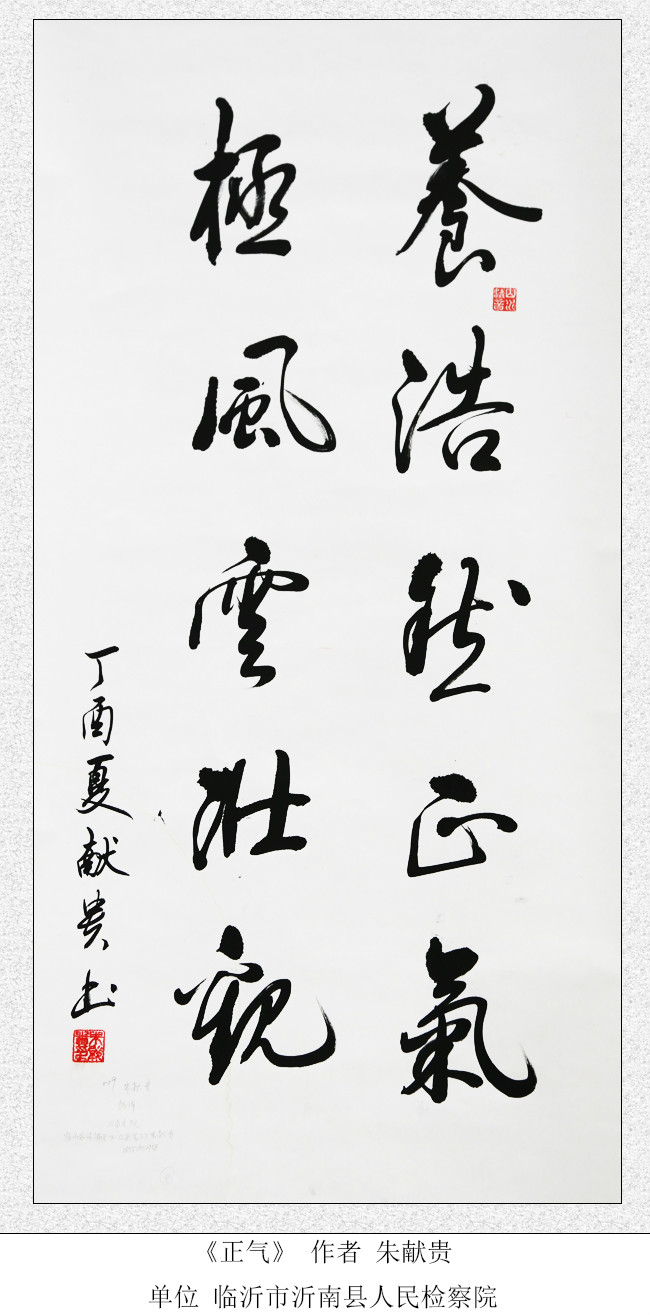 養浩然正氣
極風雲壯觀
丁酉夏献贵书
《正气》 作者 朱献贵
单位 临沂市沂南县人民检察院